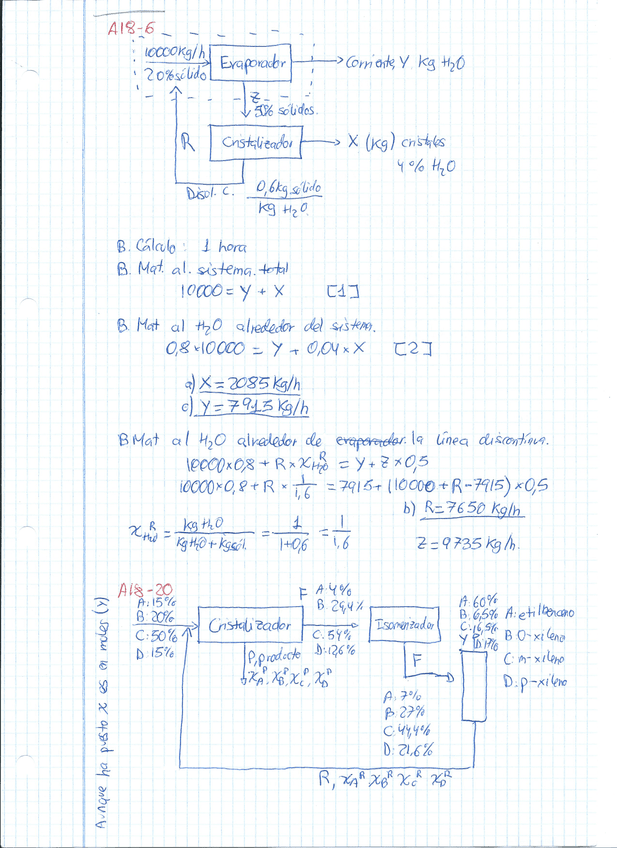 A18-6
10000Kg/h
20% sólido
Evaporador
Corriente, Y Kg H2O
Z
50% sólidos.
R
Cristalizador
X (Kg) cristales
4% H2O
Disol. C.
0,6 kg sólido
kg H2O
B. Cálculo: 1 hora
B. Mat. al. sistema total
10000 = Y + X [1]
B. Mat al H2O alrededor del sistema.
0,8*10000 = Y + 0,04*X [2]
a) X = 2085 Kg/h
c) Y = 7915 Kg/h
B Mat al H2O alrededor de evaporador la línea discontinua.
10000*0,8 + R * x_H2O^R = Y + Z*0,5
10000*0,8 + R * 1/1,6 = 7915 + (10000 + R - 7915) * 0,5
b) R = 7650 Kg/h
x_H2O^R = kg H2O / kg H2O + kg sól. = 1 / 1+0,6 = 1 / 1,6
Z = 9735 kg/h.
A18-20
A: 15%
B: 20%
C: 50%
D: 15%
Cristalizador
F
A: 4%
B: 29,4%
C: 54%
D: 12,6%
Isomerizador
A: 60%
B: 6,5%
C: 16,5%
Y D: 17%
A: etilbenceno
B: O-xileno
C: m-xileno
D: p-xileno
P, producto
x_A^P, x_B^P, x_C^P, x_D^P
F
A: 7%
B: 27%
C: 44,4%
D: 21,6%
R, x_A^R x_B^R x_C^R x_D^R
Aunque ha puesto x es en moles (Y)